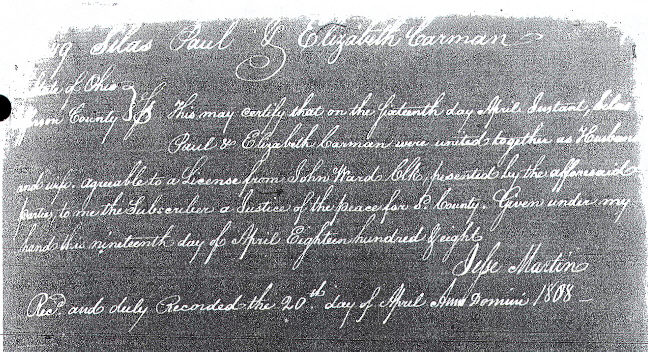 Silas Paul & Elizabeth Carman
State of Ohio
County } Ss This may certify that on the sixteenth day April Instant, Silas
Paul & Elizabeth Carman were united together as Husband
and wife agreable to a License from John Ward Clk, presented by the afforesaid
parties, to me the Subscriber a Justice of the peace for Sd. County. Given under my
hand this nineteenth day of April Eighteen hundred & eight
Jesse Martin
Recd. and duly Recorded the 20th day of April Anno Domini 1808 –